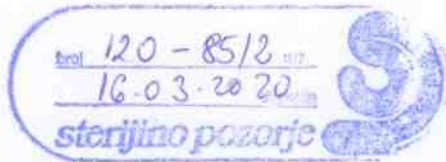 broj 120-85/2
16.03.2020
sterijino pozorje